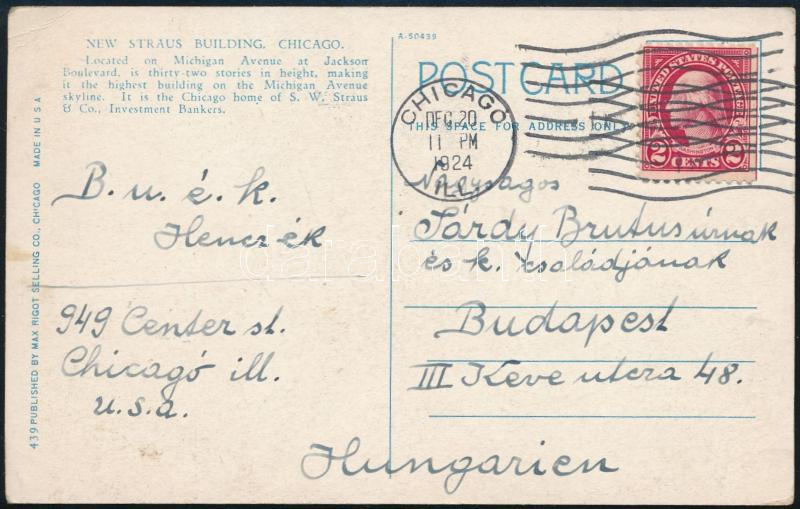 NEW STRAUS BUILDING, CHICAGO.
Located on Michigan Avenue at Jackson
Boulevard, is thirty-two stories in height, making
it the highest building on the Michigan Avenue
skyline. It is the Chicago home of S. W. Straus
& Co., Investment Bankers.
439 PUBLISHED BY MAX RIGOT SELLING CO., CHICAGO MADE IN U S A
B. u. é. k.
Henczék
949 Center st.
Chicagó ill.
u.s.a.
A-50439
POST CARD
THIS SPACE FOR ADDRESS ONLY
CHICAGO
DEC 20
11 PM
1924
ILL.
UNITED STATES POSTAGE
WASHINGTON
2 CENTS 2
Nagyságos
Sárdy Brutus úrnak
és k. családjának
Budapest
III Keve utcza 48.
Hungarien
darabanth